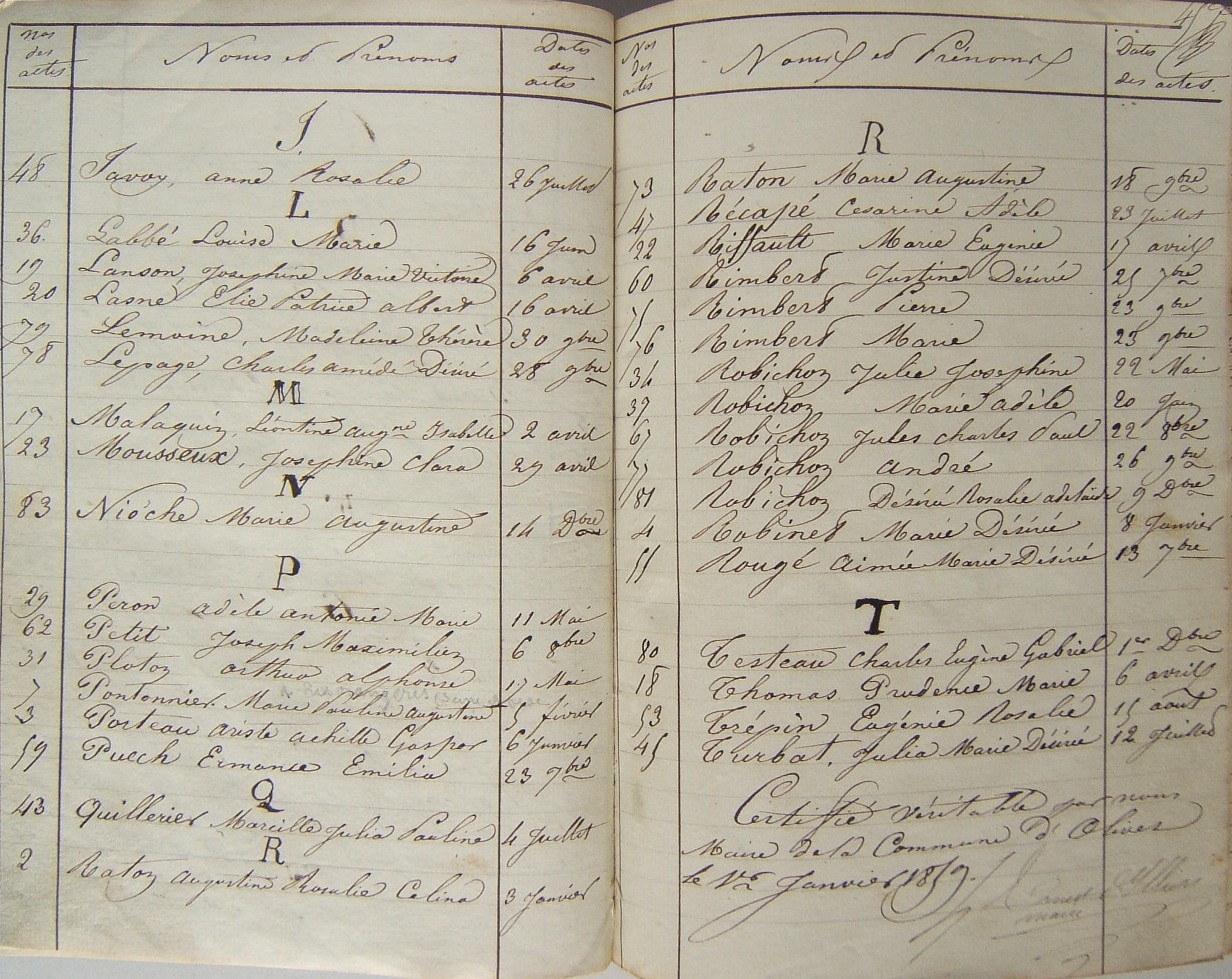 Nos des actes Noms et Prénoms Dates des actes
J
48 Javoy, anne Rosalie 26 Juillet
L
36. Labbé Louise Marie 16 Juin
19 Lanson Josephine Marie Victoire 6 avril
20 Lasné Elie Patrice albert 16 avril
79 Lemoine, Madeleine Thérèse 30 9bre
78 Lepage, Charles amédé Désiré 28 9bre
M
17 Malaquin, Léontine augne Isabelle 2 avril
23 Mousseux, Josephine Clara 29 avril
N
83 Nióche Marie augustine 14 Dbre
P
29 Peron adèle antonie Marie 11 Mai
62 Petit Joseph Maximilien 6 8bre
31 Ploton arthur alphonse 17 Mai
7 Pontonnier Marie Pauline augustine 5 février
3 Posteau ariste achille Gaspar 6 Janvier
59 Puech Ermance Emilia 23 7bre
Q
43 Quillerier Marcille Julia Pauline 4 Juillet
R
2 Raton augustine Rosalie Celina 3 Janvier
Nos des actes Noms et Prénoms Dates des actes.
R
73 Raton Marie augustine 18 9bre
47 Récapé Cesarine Adèle 23 Juillet
22 Riffault Marie Eugenie 17 avril
60 Rimbert Justine Désirée 25 7bre
75 Rimbert Pierre 23 9bre
76 Rimbert Marie 23 9bre
34 Robichon Julie Josephine 22 Mai
37 Robichon Marie adèle 20 Juin
67 Robichon Jules Charles Paul 22 8bre
77 Robichon andré 26 9bre
81 Robichon Désirée Rosalie adelaïde 9 Dbre
4 Robinet Marie Désirée 8 Janvier
55 Rougé aimée Marie Désirée 13 7bre
T
80 Testeau Charles Eugène Gabriel 1er Dbre
18 Thomas Prudence Marie 6 avril
53 Trépin Eugénie Rosalie 15 août
45 Turbat, Julia Marie Désirée 12 Juillet
Certifié véritable par nous
Maire de la Commune d'Olivet
Le 1er Janvier 1859.
maire